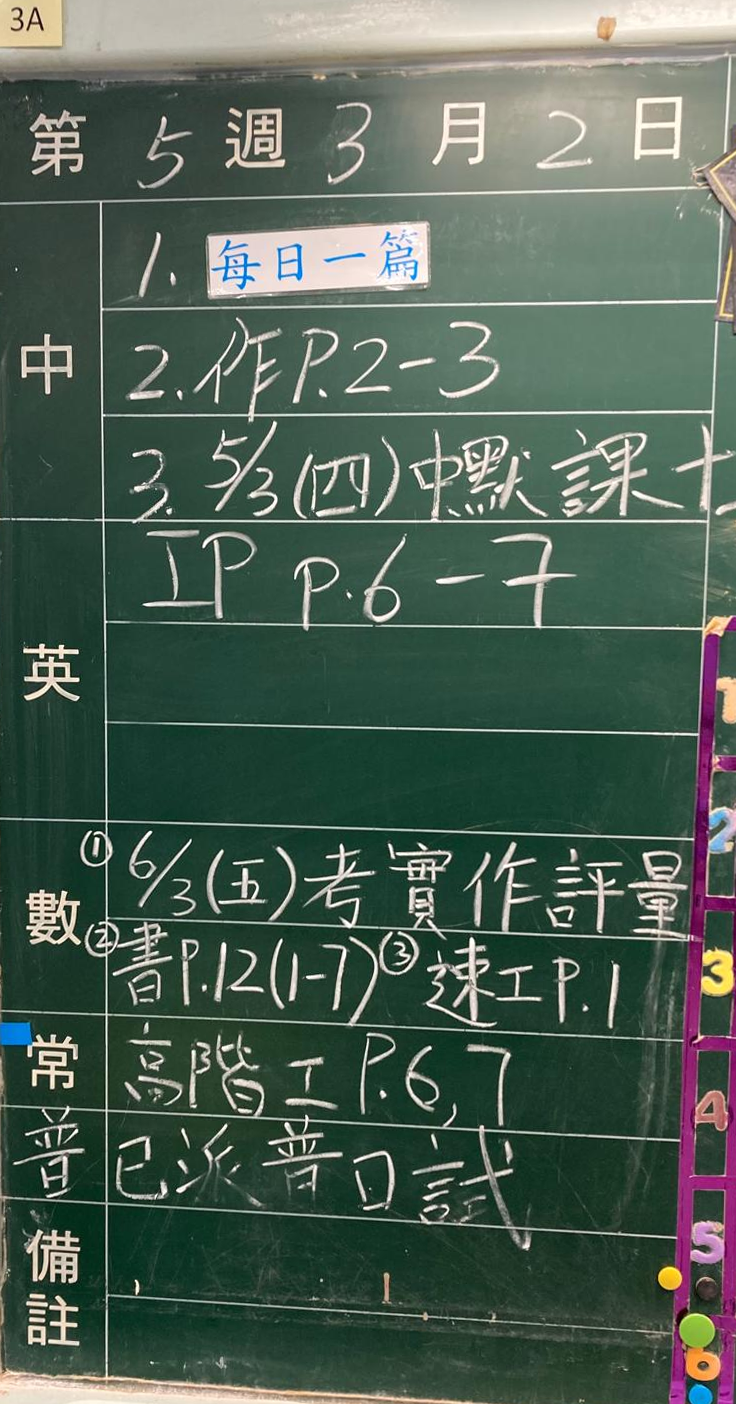 3A
第 5 週 3 月 2 日
中
1. 每日一篇
2. 作 P.2-3
3. 5/3(四)中默課十
英
IP P.6-7
數
① 6/3(五)考實作評量
② 書P.12(1-7) ③ 速工P.1
常 高階工 P.6,7
普 已派普口試
備註
1
2
3
4
5
6